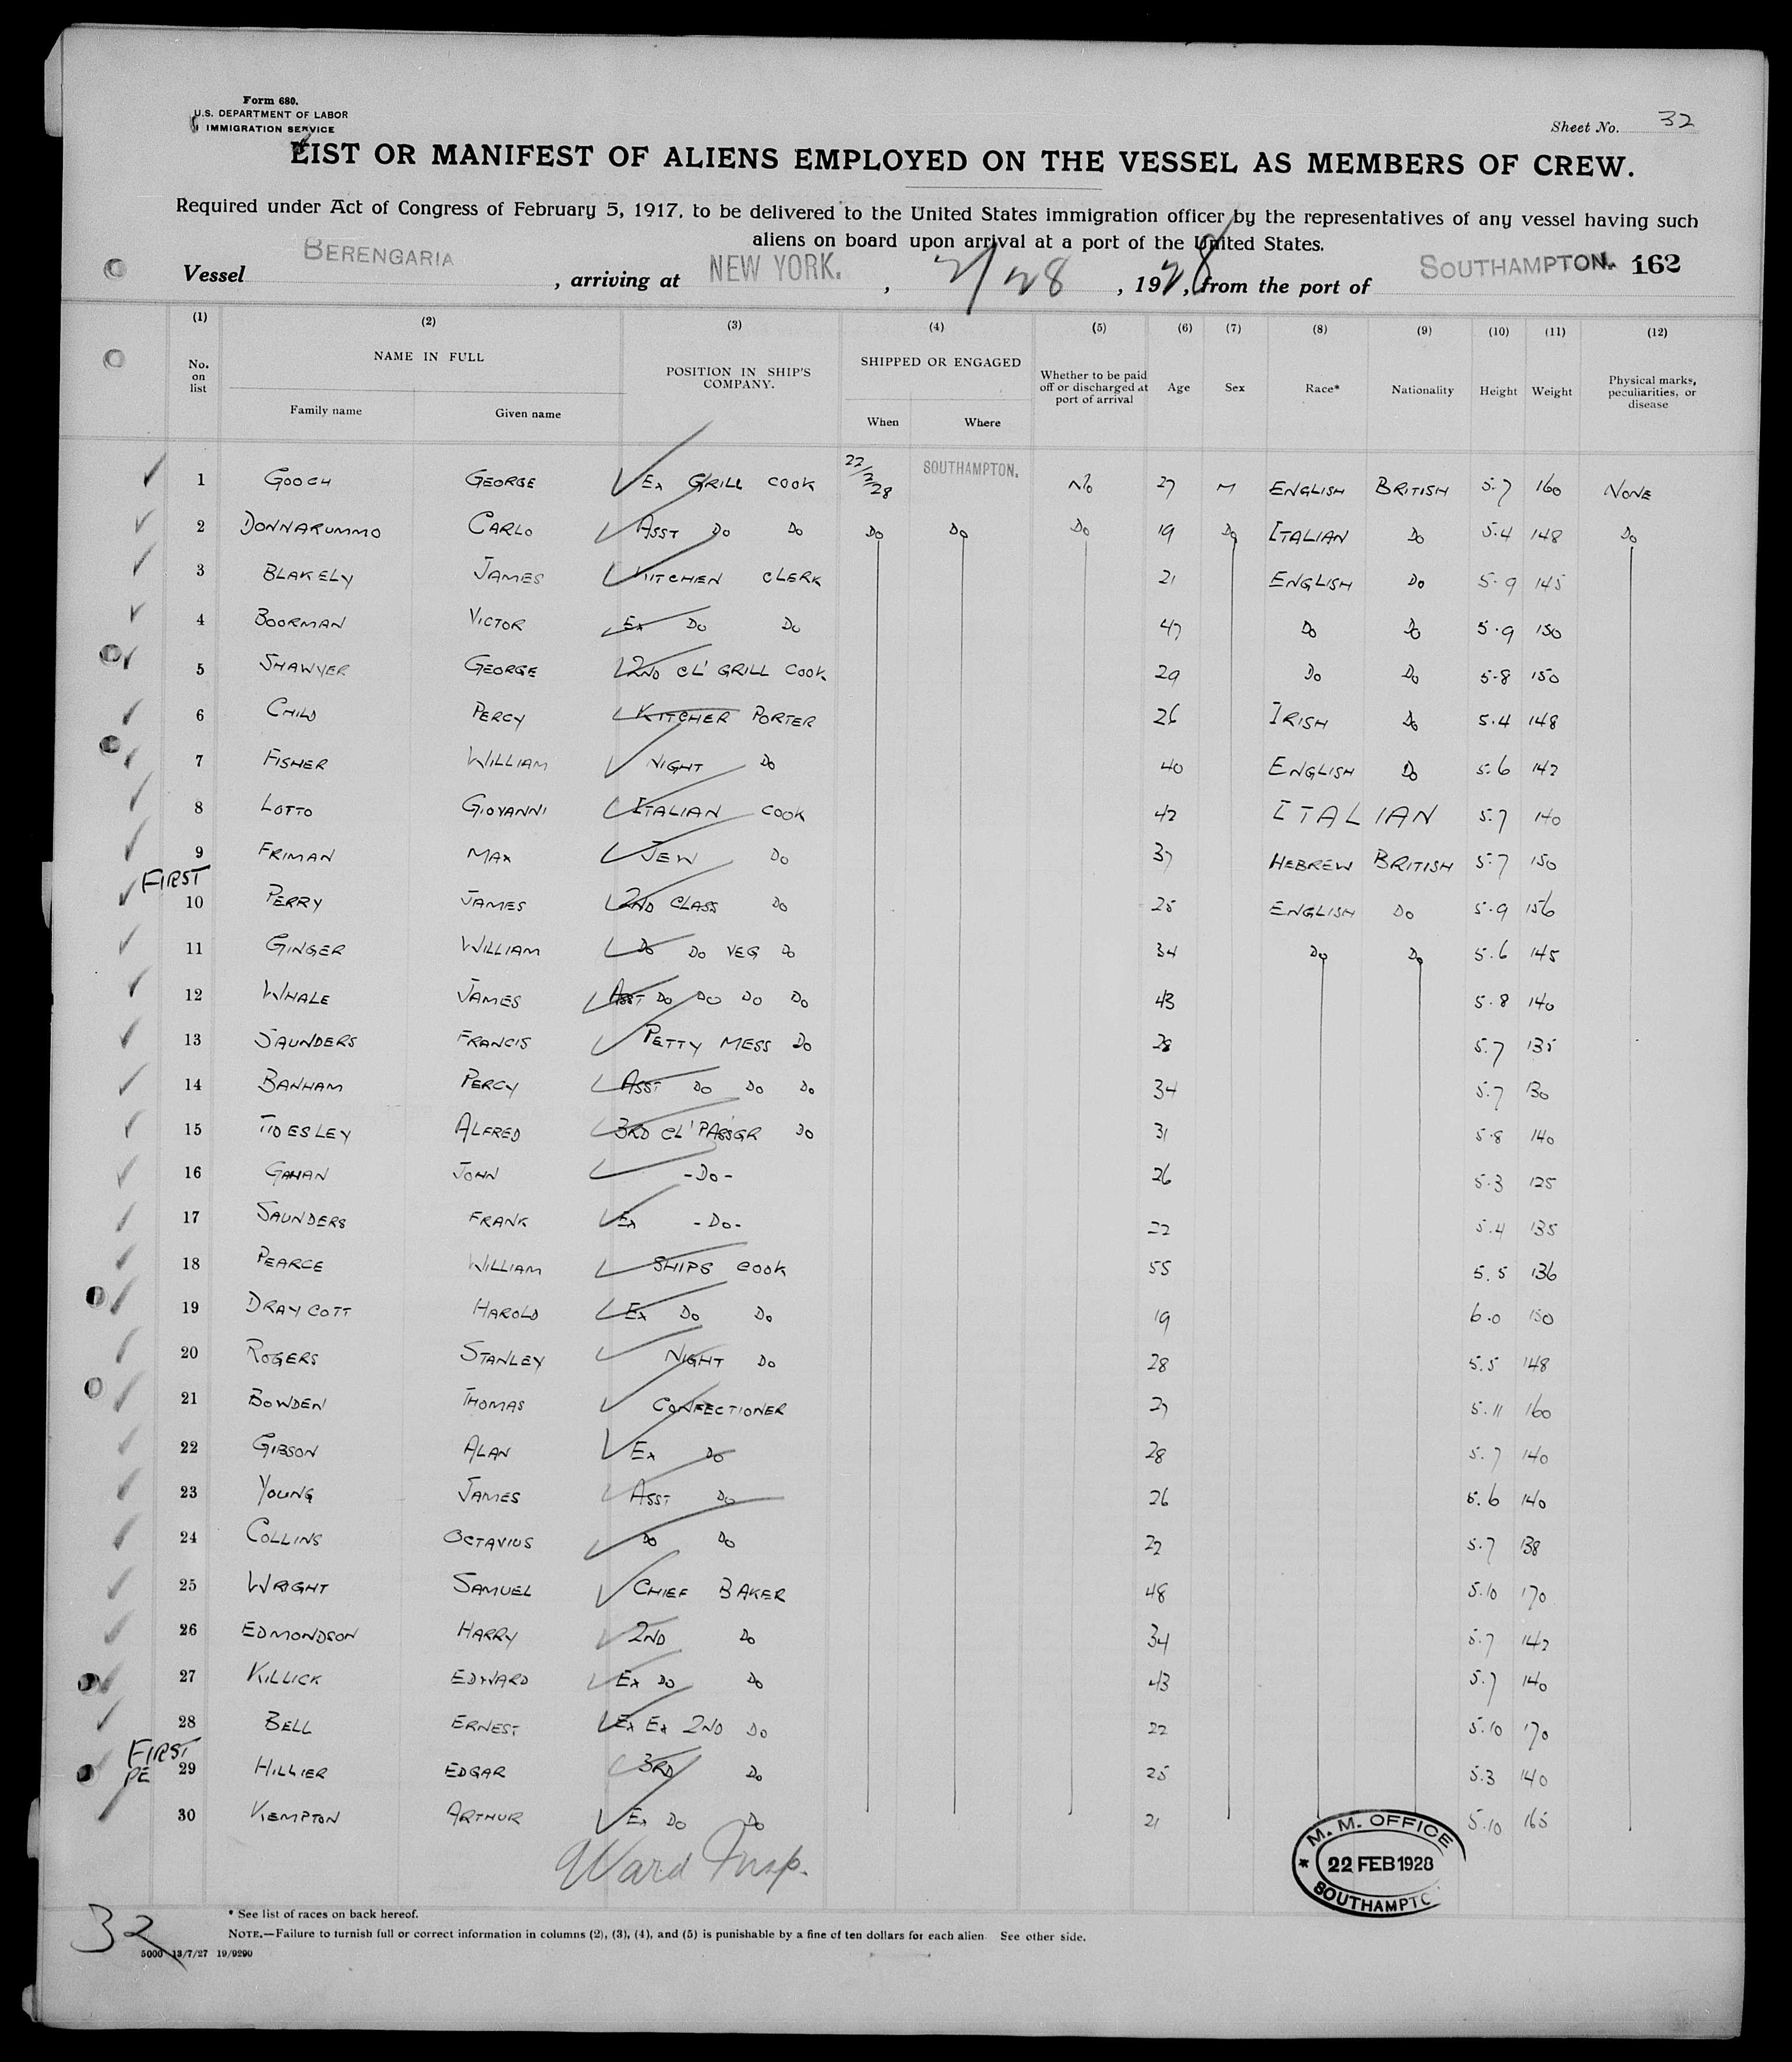 Form 680.
U.S. DEPARTMENT OF LABOR
IMMIGRATION SERVICE
Sheet No. 32
LIST OR MANIFEST OF ALIENS EMPLOYED ON THE VESSEL AS MEMBERS OF CREW.
Required under Act of Congress of February 5, 1917, to be delivered to the United States immigration officer by the representatives of any vessel having such
aliens on board upon arrival at a port of the United States.
Vessel BERENGARIA, arriving at NEW YORK., 2/28, 1928, from the port of SOUTHAMPTON. 162
(1) (2) (3) (4) (5) (6) (7) (8) (9) (10) (11) (12)
No. on list NAME IN FULL POSITION IN SHIP'S COMPANY. SHIPPED OR ENGAGED Whether to be paid off or discharged at port of arrival Age Sex Race* Nationality Height Weight Physical marks, peculiarities, or disease
Family name Given name When Where
1 GOOCH GEORGE Ex GRILL COOK 22/2/28 SOUTHAMPTON. No 27 M ENGLISH BRITISH 5.7 160 NONE
2 DONNARUMMO CARLO ASST Do Do Do Do Do 19 Do ITALIAN Do 5.4 148 Do
3 BLAKELY JAMES KITCHEN CLERK 21 ENGLISH Do 5.9 145
4 BOORMAN VICTOR Ex Do Do 47 Do Do 5.9 150
5 SHAWYER GEORGE 2ND CL' GRILL COOK 29 Do Do 5.8 150
6 CHILD PERCY KITCHER PORTER 26 IRISH Do 5.4 148
7 FISHER WILLIAM NIGHT Do 40 ENGLISH Do 5.6 142
8 LOTTO GIOVANNI ITALIAN COOK 42 ITALIAN 5.7 140
9 FRIMAN MAX JEW Do 37 HEBREW BRITISH 5.7 150
FIRST
10 PERRY JAMES 2ND CLASS Do 25 ENGLISH Do 5.9 156
11 GINGER WILLIAM Do Do VEG Do 34 Do Do 5.6 145
12 WHALE JAMES ASST Do Do Do Do 43 5.8 140
13 SAUNDERS FRANCIS PETTY MESS Do 28 5.7 135
14 BANHAM PERCY ASST Do Do Do 34 5.7 130
15 TIDESLEY ALFRED 3RD CL' PASSGR Do 31 5.8 140
16 GAHAN JOHN -Do- 26 5.3 125
17 SAUNDERS FRANK Ex -Do- 22 5.4 135
18 PEARCE WILLIAM SHIPS COOK 55 5.5 136
19 DRAYCOTT HAROLD Ex Do Do 19 6.0 150
20 ROGERS STANLEY NIGHT Do 28 5.5 148
21 BOWDEN THOMAS CONFECTIONER 27 5.11 160
22 GIBSON ALAN Ex Do 28 5.7 140
23 YOUNG JAMES ASST Do 26 5.6 140
24 COLLINS OCTAVIUS Do Do 22 5.7 138
25 WRIGHT SAMUEL CHIEF BAKER 48 5.10 170
26 EDMONDSON HARRY 2ND Do 34 5.7 142
27 KILLICK EDWARD Ex Do Do 43 5.7 140
28 BELL ERNEST Ex Ex 2ND Do 22 5.10 170
FIRST
PE 29 HILLIER EDGAR 3RD Do 25 5.3 140
30 KEMPTON ARTHUR Ex Do Do 21 5.10 165
Ward Insp.
M. M. OFFICE
22 FEB 1928
SOUTHAMPTO
32
* See list of races on back hereof.
NOTE.—Failure to turnish full or correct information in columns (2), (3), (4), and (5) is punishable by a fine of ten dollars for each alien See other side.
5000 13/7/27 19/9290